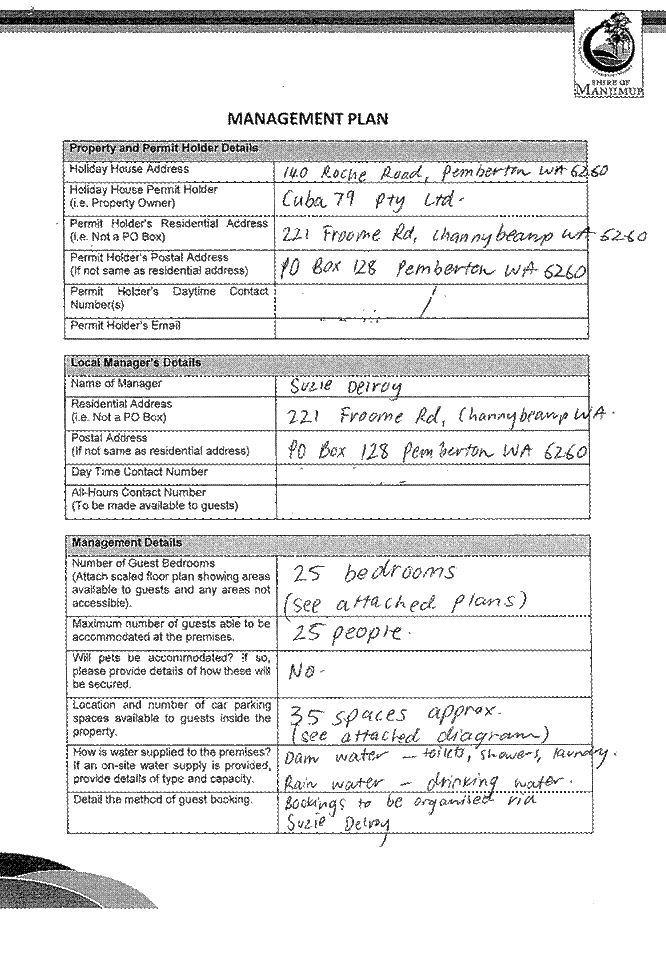 SHIRE OF
MANJIMUP
MANAGEMENT PLAN
Property and Permit Holder Details
Holiday House Address
140 Roche Road, Pemberton WA 6260
Holiday House Permit Holder
(i.e. Property Owner)
Cuba 79 Pty Ltd.
Permit Holder's Residential Address
(i.e. Not a PO Box)
221 Froome Rd, Channybearup WA 6260
Permit Holder's Postal Address
(If not same as residential address)
PO Box 128 Pemberton WA 6260
Permit Holder's Daytime Contact
Number(s)
Permit Holder's Email
Local Manager's Details
Name of Manager
Suzie Delroy
Residential Address
(i.e. Not a PO Box)
221 Froome Rd, Channybearup WA.
Postal Address
(If not same as residential address)
PO Box 128 Pemberton WA 6260
Day Time Contact Number
All-Hours Contact Number
(To be made available to guests)
Management Details
Number of Guest Bedrooms
(Attach scaled floor plan showing areas
available to guests and any areas not
accessible).
25 bedrooms
(see attached plans)
Maximum number of guests able to be
accommodated at the premises.
25 people.
Will pets be accommodated? If so,
please provide details of how these will
be secured.
No.
Location and number of car parking
spaces available to guests inside the
property.
35 spaces approx.
(see attached diagram)
How is water supplied to the premises?
If an on-site water supply is provided,
provide details of type and capacity.
Dam water – toilets, showers, laundry.
Rain water – drinking water.
Detail the method of guest booking.
Bookings to be organised via
Suzie Delroy